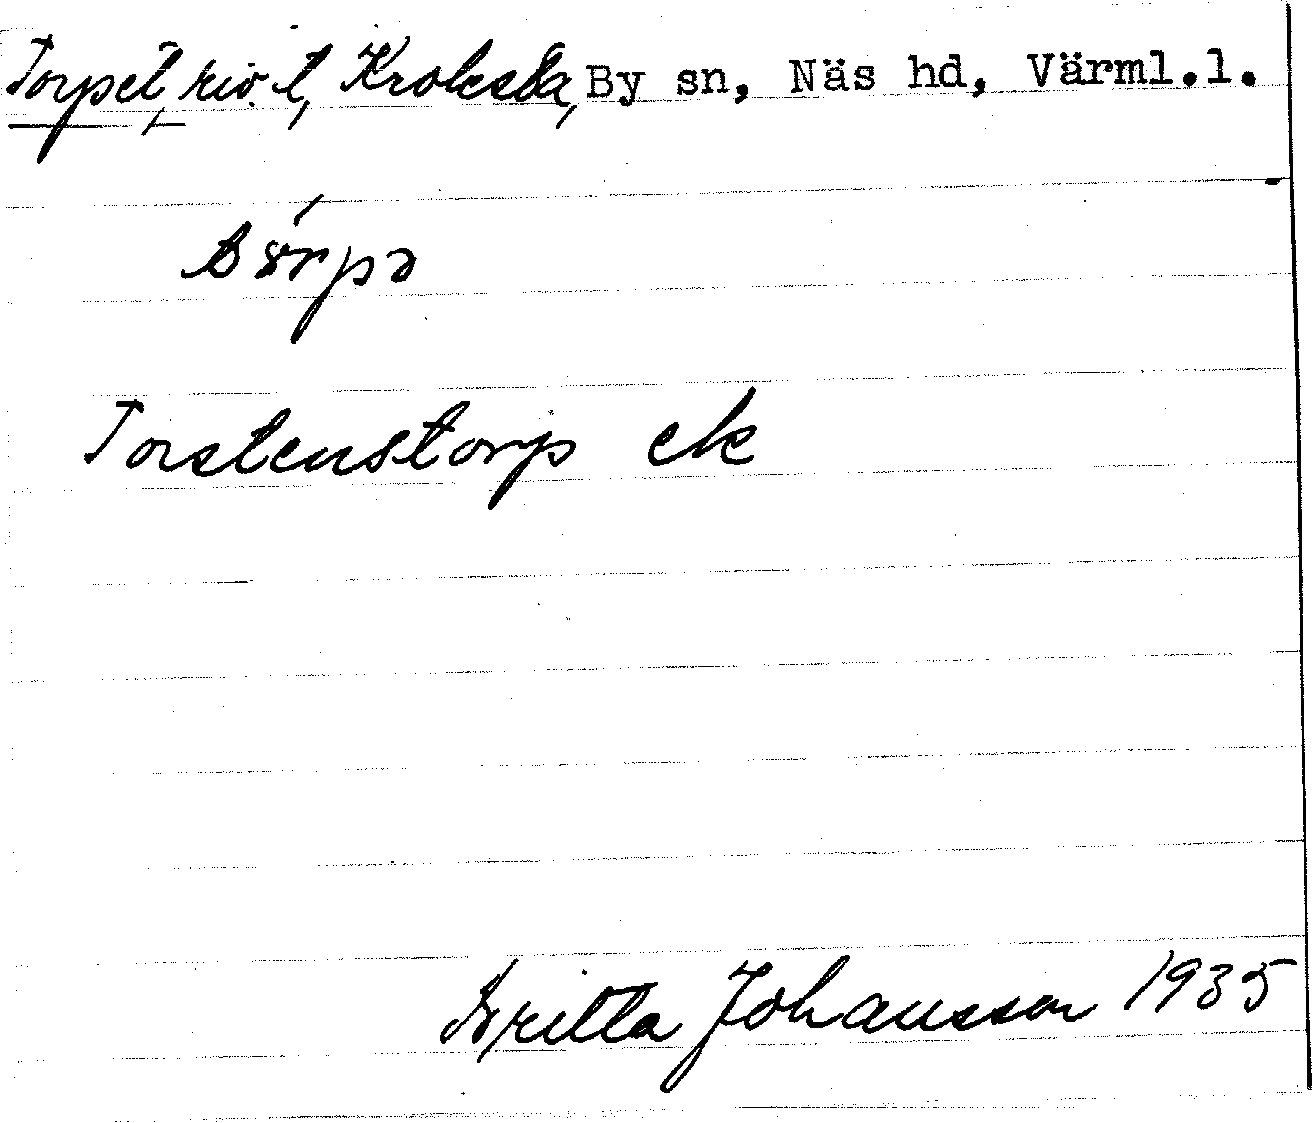 Torpet, riv. t, Krokstad, By sn, Näs hd, Värml.l.
Torstenstorp ek
Britta Johansson 1935